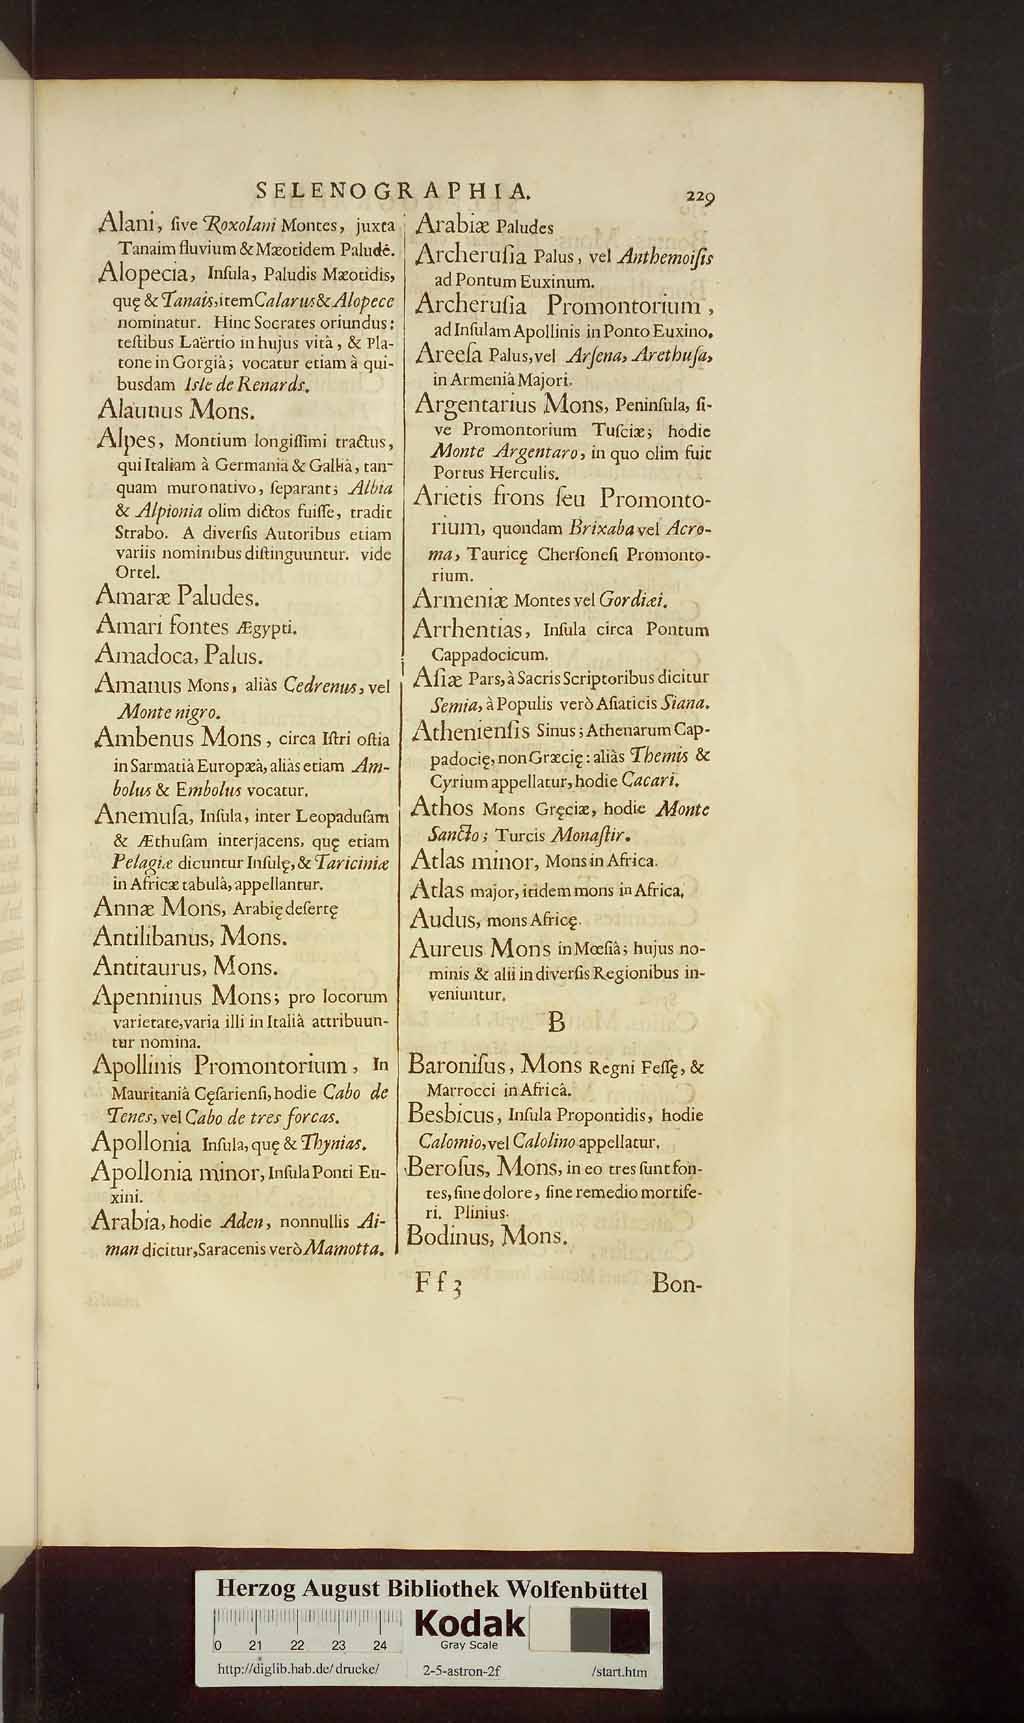 SELENOGRAPHIA. 229
Alani, ſive Roxolani Montes, juxta
Tanaim fluvium & Mæotidem Paludē.
Alopecia, Inſula, Paludis Mæotidis,
quę & Tanais, item Calarus & Alopece
nominatur. Hinc Socrates oriundus:
teſtibus Laërtio in hujus vitâ, & Pla-
tone in Gorgiâ; vocatur etiam à qui-
busdam Isle de Renards.
Alaunus Mons.
Alpes, Montium longiſſimi tractus,
qui Italiam à Germaniâ & Galliâ, tan-
quam muro nativo, ſeparant; Albia
& Alpionia olim dictos fuiſſe, tradit
Strabo. A diverſis Autoribus etiam
variis nominibus diſtinguuntur. vide
Ortel.
Amaræ Paludes.
Amari fontes Ægypti.
Amadoca, Palus.
Amanus Mons, aliàs Cedrenus, vel
Monte nigro.
Ambenus Mons, circa Iſtri oſtia
in Sarmatiâ Europæâ, aliàs etiam Am-
bolus & Embolus vocatur.
Anemuſa, Inſula, inter Leopaduſam
& Æthuſam interjacens, quę etiam
Pelagiæ dicuntur Inſulę, & Tariciniæ
in Africæ tabulâ, appellantur.
Annæ Mons, Arabię deſertę
Antilibanus, Mons.
Antitaurus, Mons.
Apenninus Mons; pro locorum
varietate, varia illi in Italiâ attribuun-
tur nomina.
Apollinis Promontorium, In
Mauritaniâ Cęſarienſi, hodie Cabo de
Tenes, vel Cabo de tres forcas.
Apollonia Inſula, quę & Thynias.
Apollonia minor, Inſula Ponti Eu-
xini.
Arabia, hodie Aden, nonnullis Ai-
man dicitur, Saracenis verò Mamotta.
Arabiæ Paludes
Archeruſia Palus, vel Anthemoiſis
ad Pontum Euxinum.
Archeruſia Promontorium,
ad Inſulam Apollinis in Ponto Euxino.
Areeſa Palus, vel Arſena, Arethuſa,
in Armeniâ Majori.
Argentarius Mons, Peninſula, ſi-
ve Promontorium Tuſciæ; hodie
Monte Argentaro, in quo olim fuit
Portus Herculis.
Arietis frons ſeu Promonto-
rium, quondam Brixaba vel Acro-
ma, Tauricę Cherſoneſi Promonto-
rium.
Armeniæ Montes vel Gordiæi.
Arrhentias, Inſula circa Pontum
Cappadocicum.
Aſiæ Pars, à Sacris Scriptoribus dicitur
Semia, à Populis verò Aſiaticis Siana.
Athenienſis Sinus; Athenarum Cap-
padocię, non Græcię: aliàs Themis &
Cyrium appellatur, hodie Cacari.
Athos Mons Gręciæ, hodie Monte
Sancto; Turcis Monaſtir.
Atlas minor, Mons in Africa.
Atlas major, itidem mons in Africa.
Audus, mons Africę.
Aureus Mons in Mœſiâ; hujus no-
minis & alii in diverſis Regionibus in-
veniuntur.
B
Baroniſus, Mons Regni Feſſę, &
Marrocci in Africâ.
Besbicus, Inſula Propontidis, hodie
Calomio, vel Calolino appellatur.
Beroſus, Mons, in eo tres ſunt fon-
tes, ſine dolore, ſine remedio mortife-
ri. Plinius.
Bodinus, Mons.
F f 3 Bon-
Herzog August Bibliothek Wolfenbüttel
Kodak
Gray Scale
0 21 22 23 24
http://diglib.hab.de/drucke/ 2-5-astron-2f /start.htm